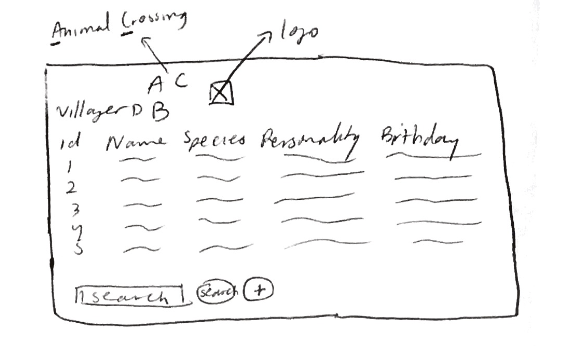 Animal Crossing
logo
A C
Villager D B
id Name Species Personality Birthday
1
2
3
4
5
search search +